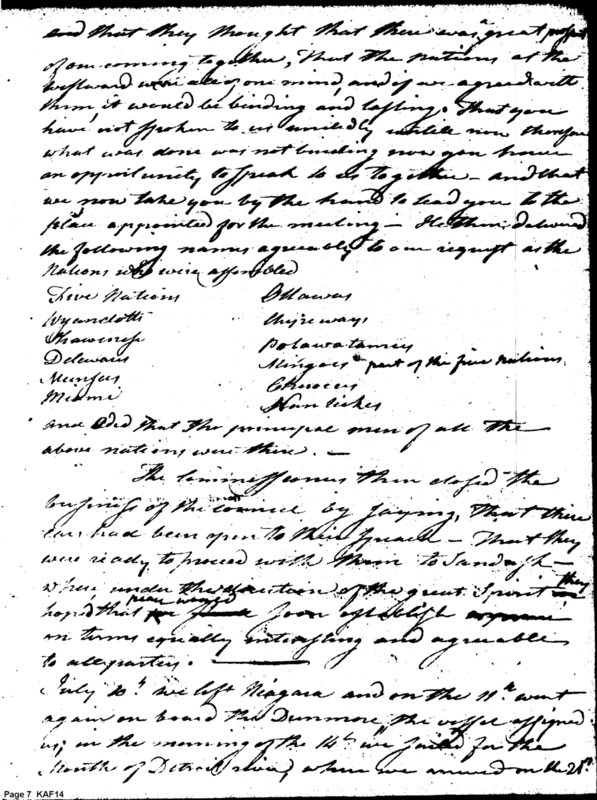 and that they thought that there was a great prospect
of our coming together, That the nations at the
westward were all of one mind, and if we agreed with
them, it would be binding and lasting. That you
have not spoken to us unitedly untill now therefore
what was done was not binding now you have
an opportunity to speak to us together - and that
we now take you by the hand to lead you to the
place appointed for the meeting - He then delivered
the following names agreeably to our request as the
Nations who were assembled
Five Nations Ottawas
Wyandotts Chipeways
Shawnese Potawatamies
Delewares Mingoes part of the five nations
Munsees Cherocees
Miamie Nantickes
and added that the principal men of all the
above nations were there. -
The Commissioners then closed the
business of the council by saying, That their
ears had been open to their speech - That they
were ready to proceed with them to Sandusky -
where under the direction of the great Spirit they
hoped that peace would soon establish
on terms equally interesting and agreeable
to all parties.
July 10th we left Niagara and on the 11th went
again on board the Dunmore, the vessel assigned
us, in the morning of the 14th we sailed for the
Mouth of Detroit river, where we arrived on the 21st
Page 7 KAF14